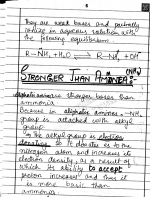 They are weak bases and partially
ionize in aqueous solution with
following equilibrium
R-NH₂ + H₂O ⇌ R-NH₃ + OH
STRONGER THAN AMMONIA:
aliphatic amines are stronger bases than
ammonia.
because in aliphatic amines -NH₂
group is attached with alkyl
group.
The alkyl group is electron
donating. so it donates to the
nitrogen atom and increases its
electron density, as a result of
which its ability to accept
proton increases and thus it
is more basic than
ammonia.